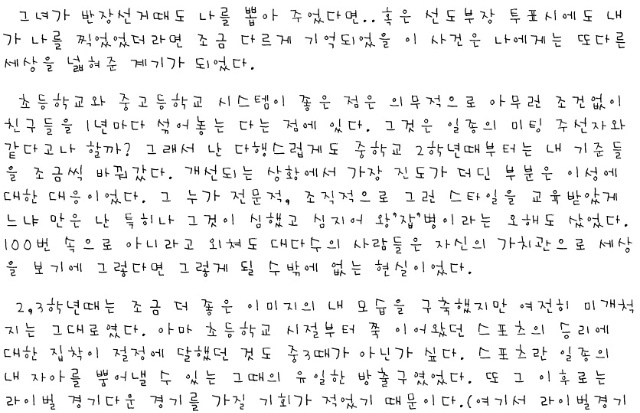 그녀가 반장선거때도 나를 뽑아 주었다면..혹은 선도부장 투표시에도 내
가 나를 찍었었더라면 조금 다르게 기억되었을 이 사건은 나에게는 또다른
세상을 넓혀준 계기가 되었다.
초등학교와 중고등학교 시스템이 좋은 점은 의무적으로 아무런 조건없이
친구들을 1년마다 섞어놓는 다는 점에 있다. 그것은 일종의 미팅 주선자와
같다고나 할까? 그래서 난 다행스럽게도 중학교 2학년때부터는 내 기준들
을 조금씩 바꿔갔다. 개선되는 상황에서 가장 진도가 더딘 부분은 이성에
대한 대응이었다. 그 누가 전문적, 조직적으로 그런 스타일을 교육받았게
느냐 만은 난 특히나 그것이 심했고 심지어 왕"잡"병이라는 오해도 샀었다.
100번 속으로 아니라고 외쳐도 대다수의 사람들은 자신의 가치관으로 세상
을 보기에 그렇다면 그렇게 될 수밖에 없는 현실이었다.
2,3학년때는 조금 더 좋은 이미지의 내 모습을 구축했지만 여전히 미개척
지는 그대로였다. 아마 초등학교 시절부터 쭉 이어왔던 스포츠의 승리에
대한 집착이 절정에 달했던 것도 중3때가 아닌가 싶다. 스포츠란 일종의
내 자아를 뿜어낼 수 있는 그때의 유일한 방출구였었다. 또 그 이후로는
라이벌 경기다운 경기를 가질 기회가 적었기 때문이다.(여기서 라이벌경기